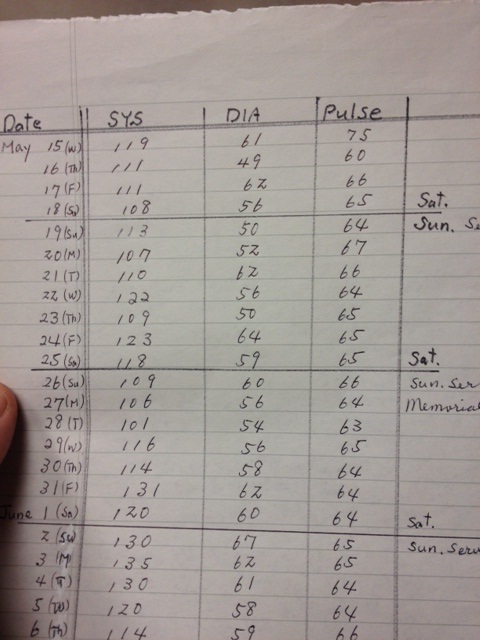 Date SYS DIA Pulse
May 15 (W) 119 61 75
16 (Th) 111 49 60
17 (F) 111 62 66
18 (Sa) 108 56 65 Sat.
19 (Su) 113 50 64 Sun. Se
20 (M) 107 52 67
21 (T) 110 62 66
22 (W) 122 56 64
23 (Th) 109 50 65
24 (F) 123 64 65
25 (Sa) 118 59 65 Sat.
26 (Su) 109 60 66 Sun. Ser
27 (M) 106 56 64 Memorial
28 (T) 101 54 63
29 (W) 116 56 65
30 (Th) 114 58 64
31 (F) 131 62 64
June 1 (Sa) 120 60 64 Sat.
2 (Su) 130 67 65 Sun. Serv
3 (M) 135 62 65
4 (T) 130 61 64
5 (W) 120 58 64
6 (Th) 114 59 66